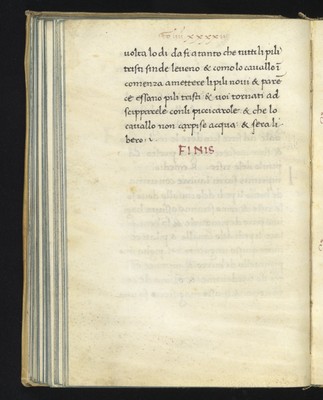 uolta lo di da fi atanto che tutti li pili
tristi sinde leueno & como lo cauallo ī
comenza amettere li pili noui & pare
ce essano pili tristi & uoi tornati ad
scippar cele con li piccicarole & che lo
cauallo non corpise acqua & sera li-
bero
FINIS